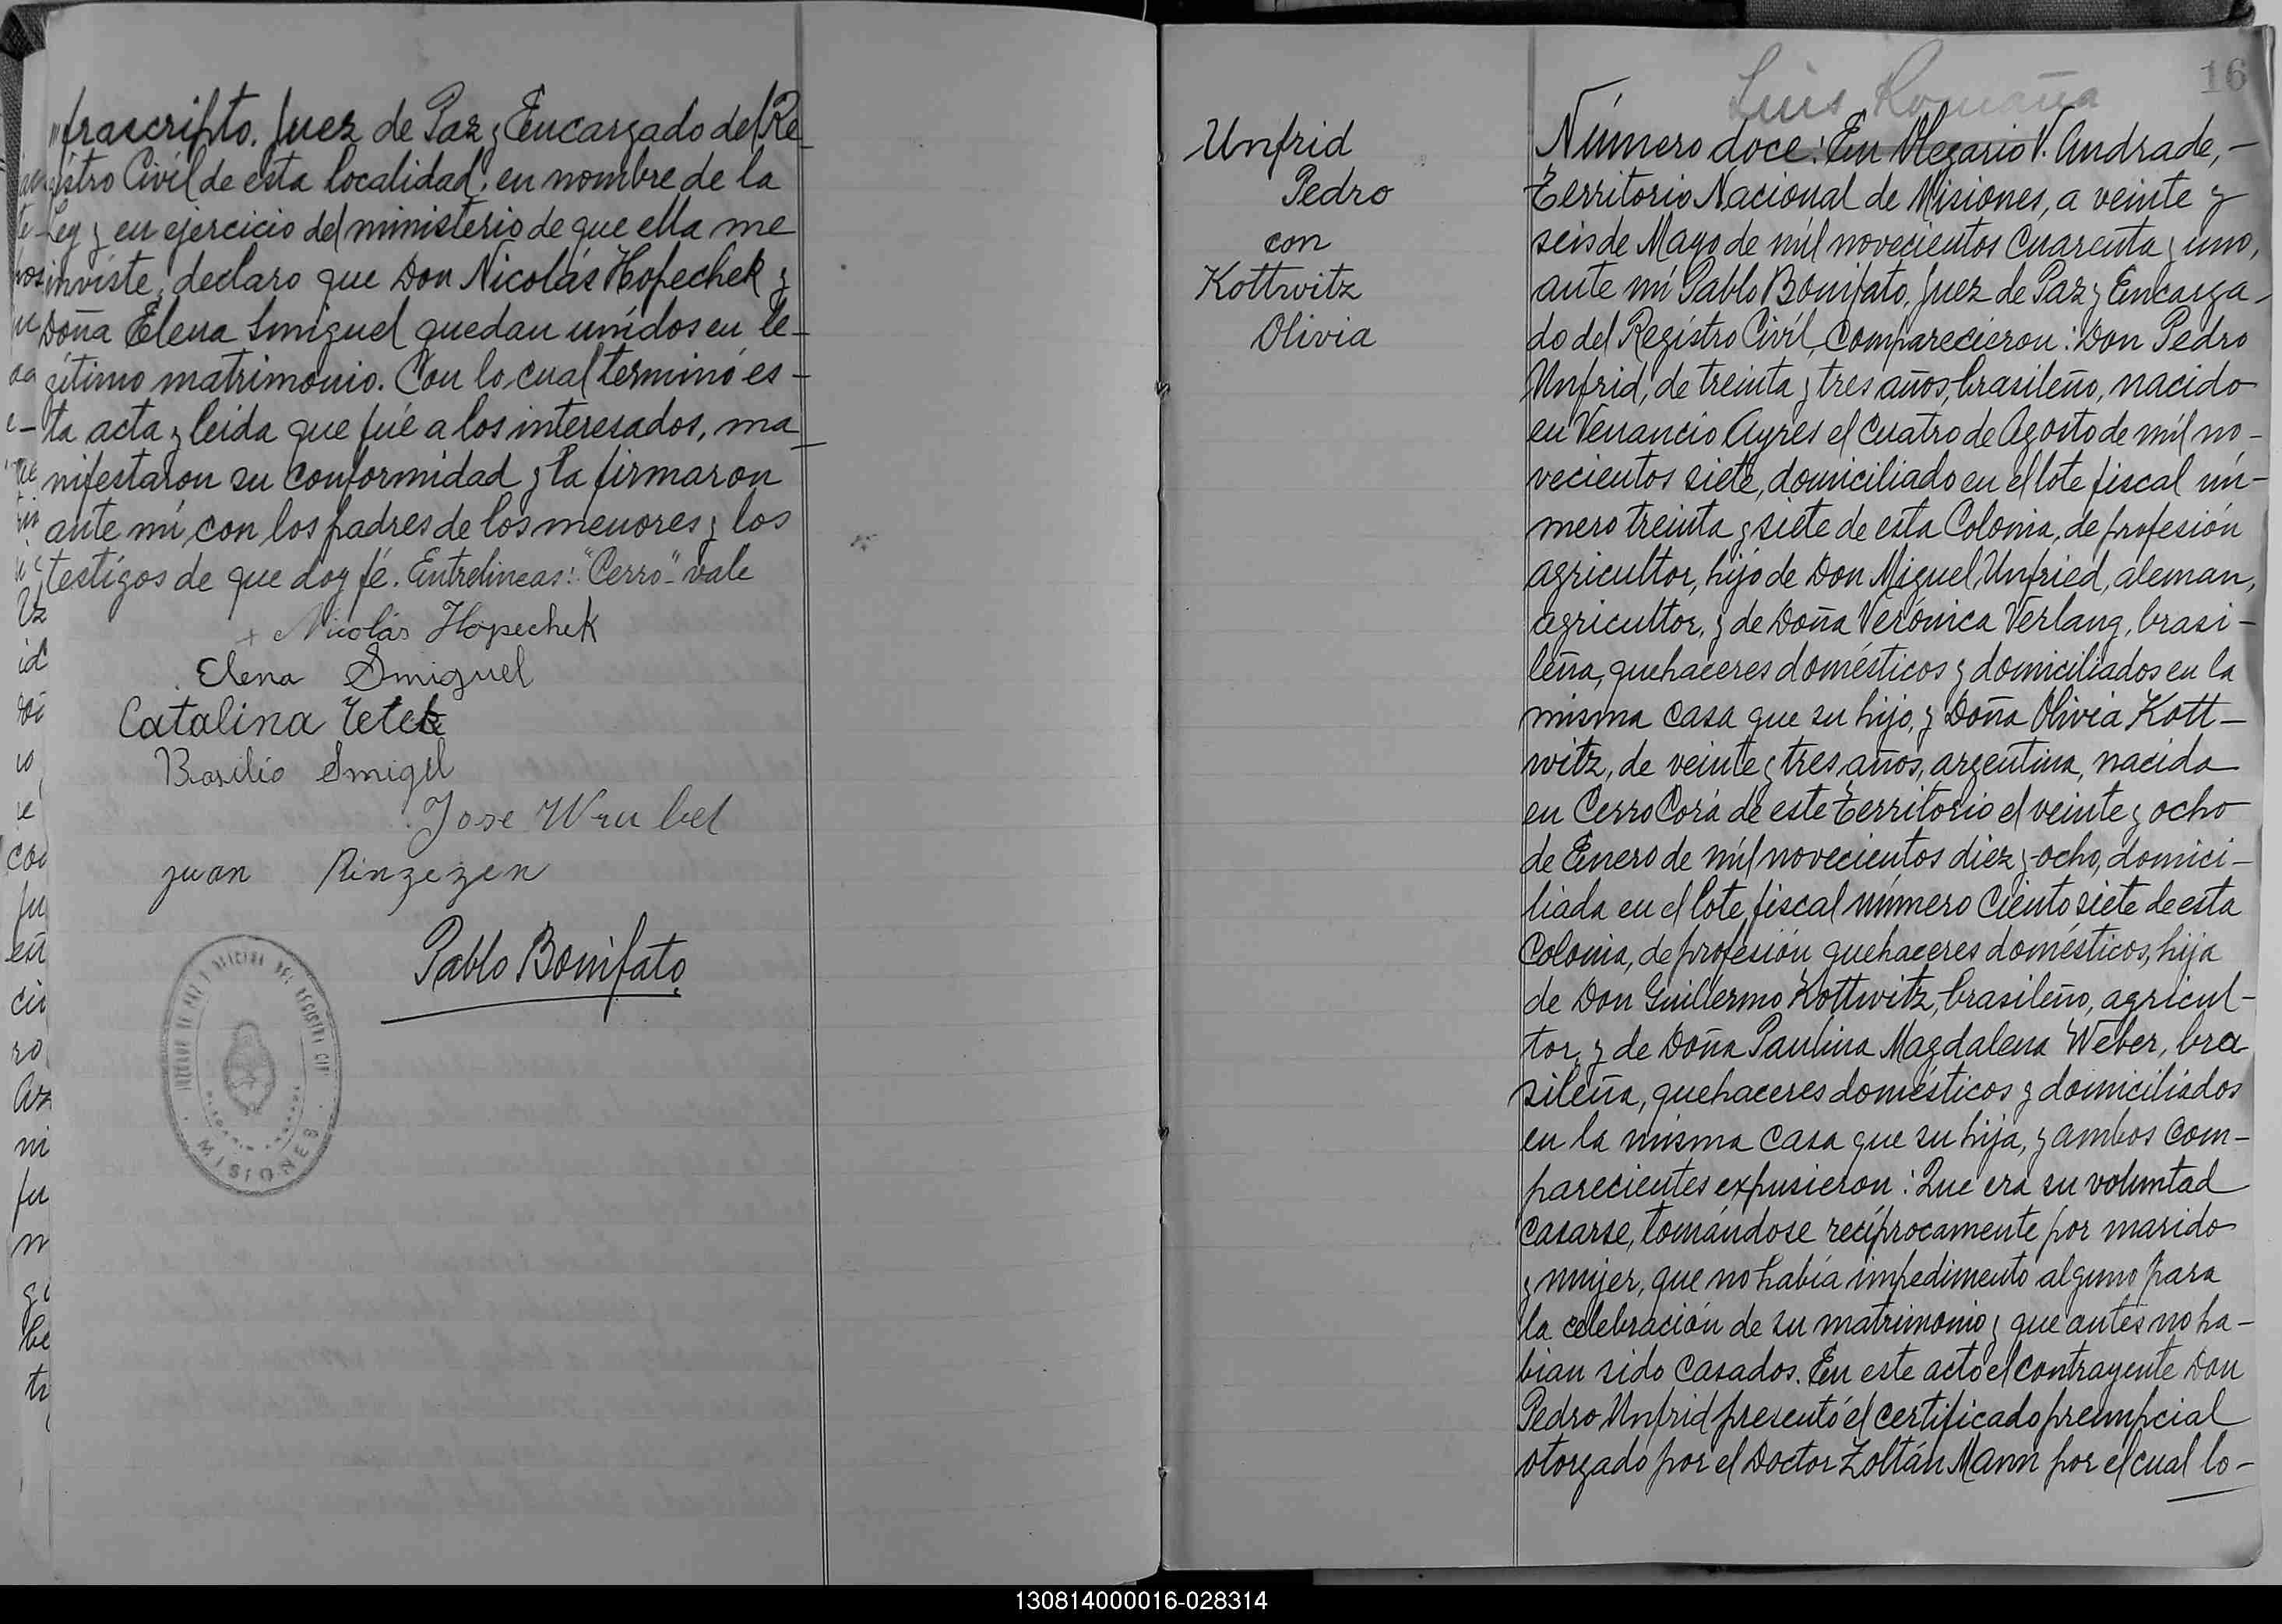 "frascripto, Juez de Paz y Encargado del Re-
gistro Civil de esta localidad, en nombre de la
Ley y en ejercicio del ministerio de que ella me
inviste, declaro que Don Nicolás Hopechek y
Doña Elena Smiguel quedan unidos en le-
gítimo matrimonio. Con lo cual terminó es-
ta acta y leída que fué a los interesados, ma-
nifestaron su conformidad y la firmaron
ante mí con los padres de los menores y los
testigos de que doy fé. Entrelineas: "Cerro" vale
+ Nicolás Hopechek
Elena Smiguel
Catalina
Basilio Smigel
Jose Wrubel
juan Rinzezen
Pablo Bonifato
JUZGADO DE PAZ Y OFICINA DEL REGISTRO CIVIL
MISIONES
16
Luis Romaña
Unfrid
Pedro
con
Kottwitz
Olivia
Número doce: En Olegario V. Andrade,-
Territorio Nacional de Misiones, a veinte y
seis de Mayo de mil novecientos cuarenta y uno,
ante mí Pablo Bonifato, Juez de Paz y Encarga-
do del Registro Civil, comparecieron: Don Pedro
Unfrid, de treinta y tres años, brasileño, nacido
en Venancio Ayres el cuatro de Agosto de mil no-
vecientos siete, domiciliado en el lote fiscal nú-
mero treinta y siete de esta Colonia, de profesión
agricultor, hijo de Don Miguel Unfried, aleman,
agricultor, y de Doña Verónica Verlang, brasi-
leña, quehaceres domésticos y domiciliados en la
misma casa que su hijo, y Doña Olivia Kott-
witz, de veinte y tres años, argentina, nacida
en Cerro Corá de este Territorio el veinte y ocho
de Enero de mil novecientos diez y ocho, domici-
liada en el lote fiscal número ciento siete de esta
Colonia, de profesión quehaceres domésticos, hija
de Don Guillermo Kottwitz, brasileño, agricul-
tor, y de Doña Paulina Magdalena Weber, bra
sileña, quehaceres domésticos y domiciliados
en la misma casa que su hija, y ambos com-
parecientes expusieron: Que era su voluntad
casarse, tomándose recíprocamente por marido
y mujer, que no había impedimento alguno para
la celebración de su matrimonio y que antes no ha-
bian sido casados. En este acto el contrayente Don
Pedro Unfrid presentó el certificado prenupcial
otorgado por el Doctor Zoltán Mann por el cual lo-
130814000016-028314